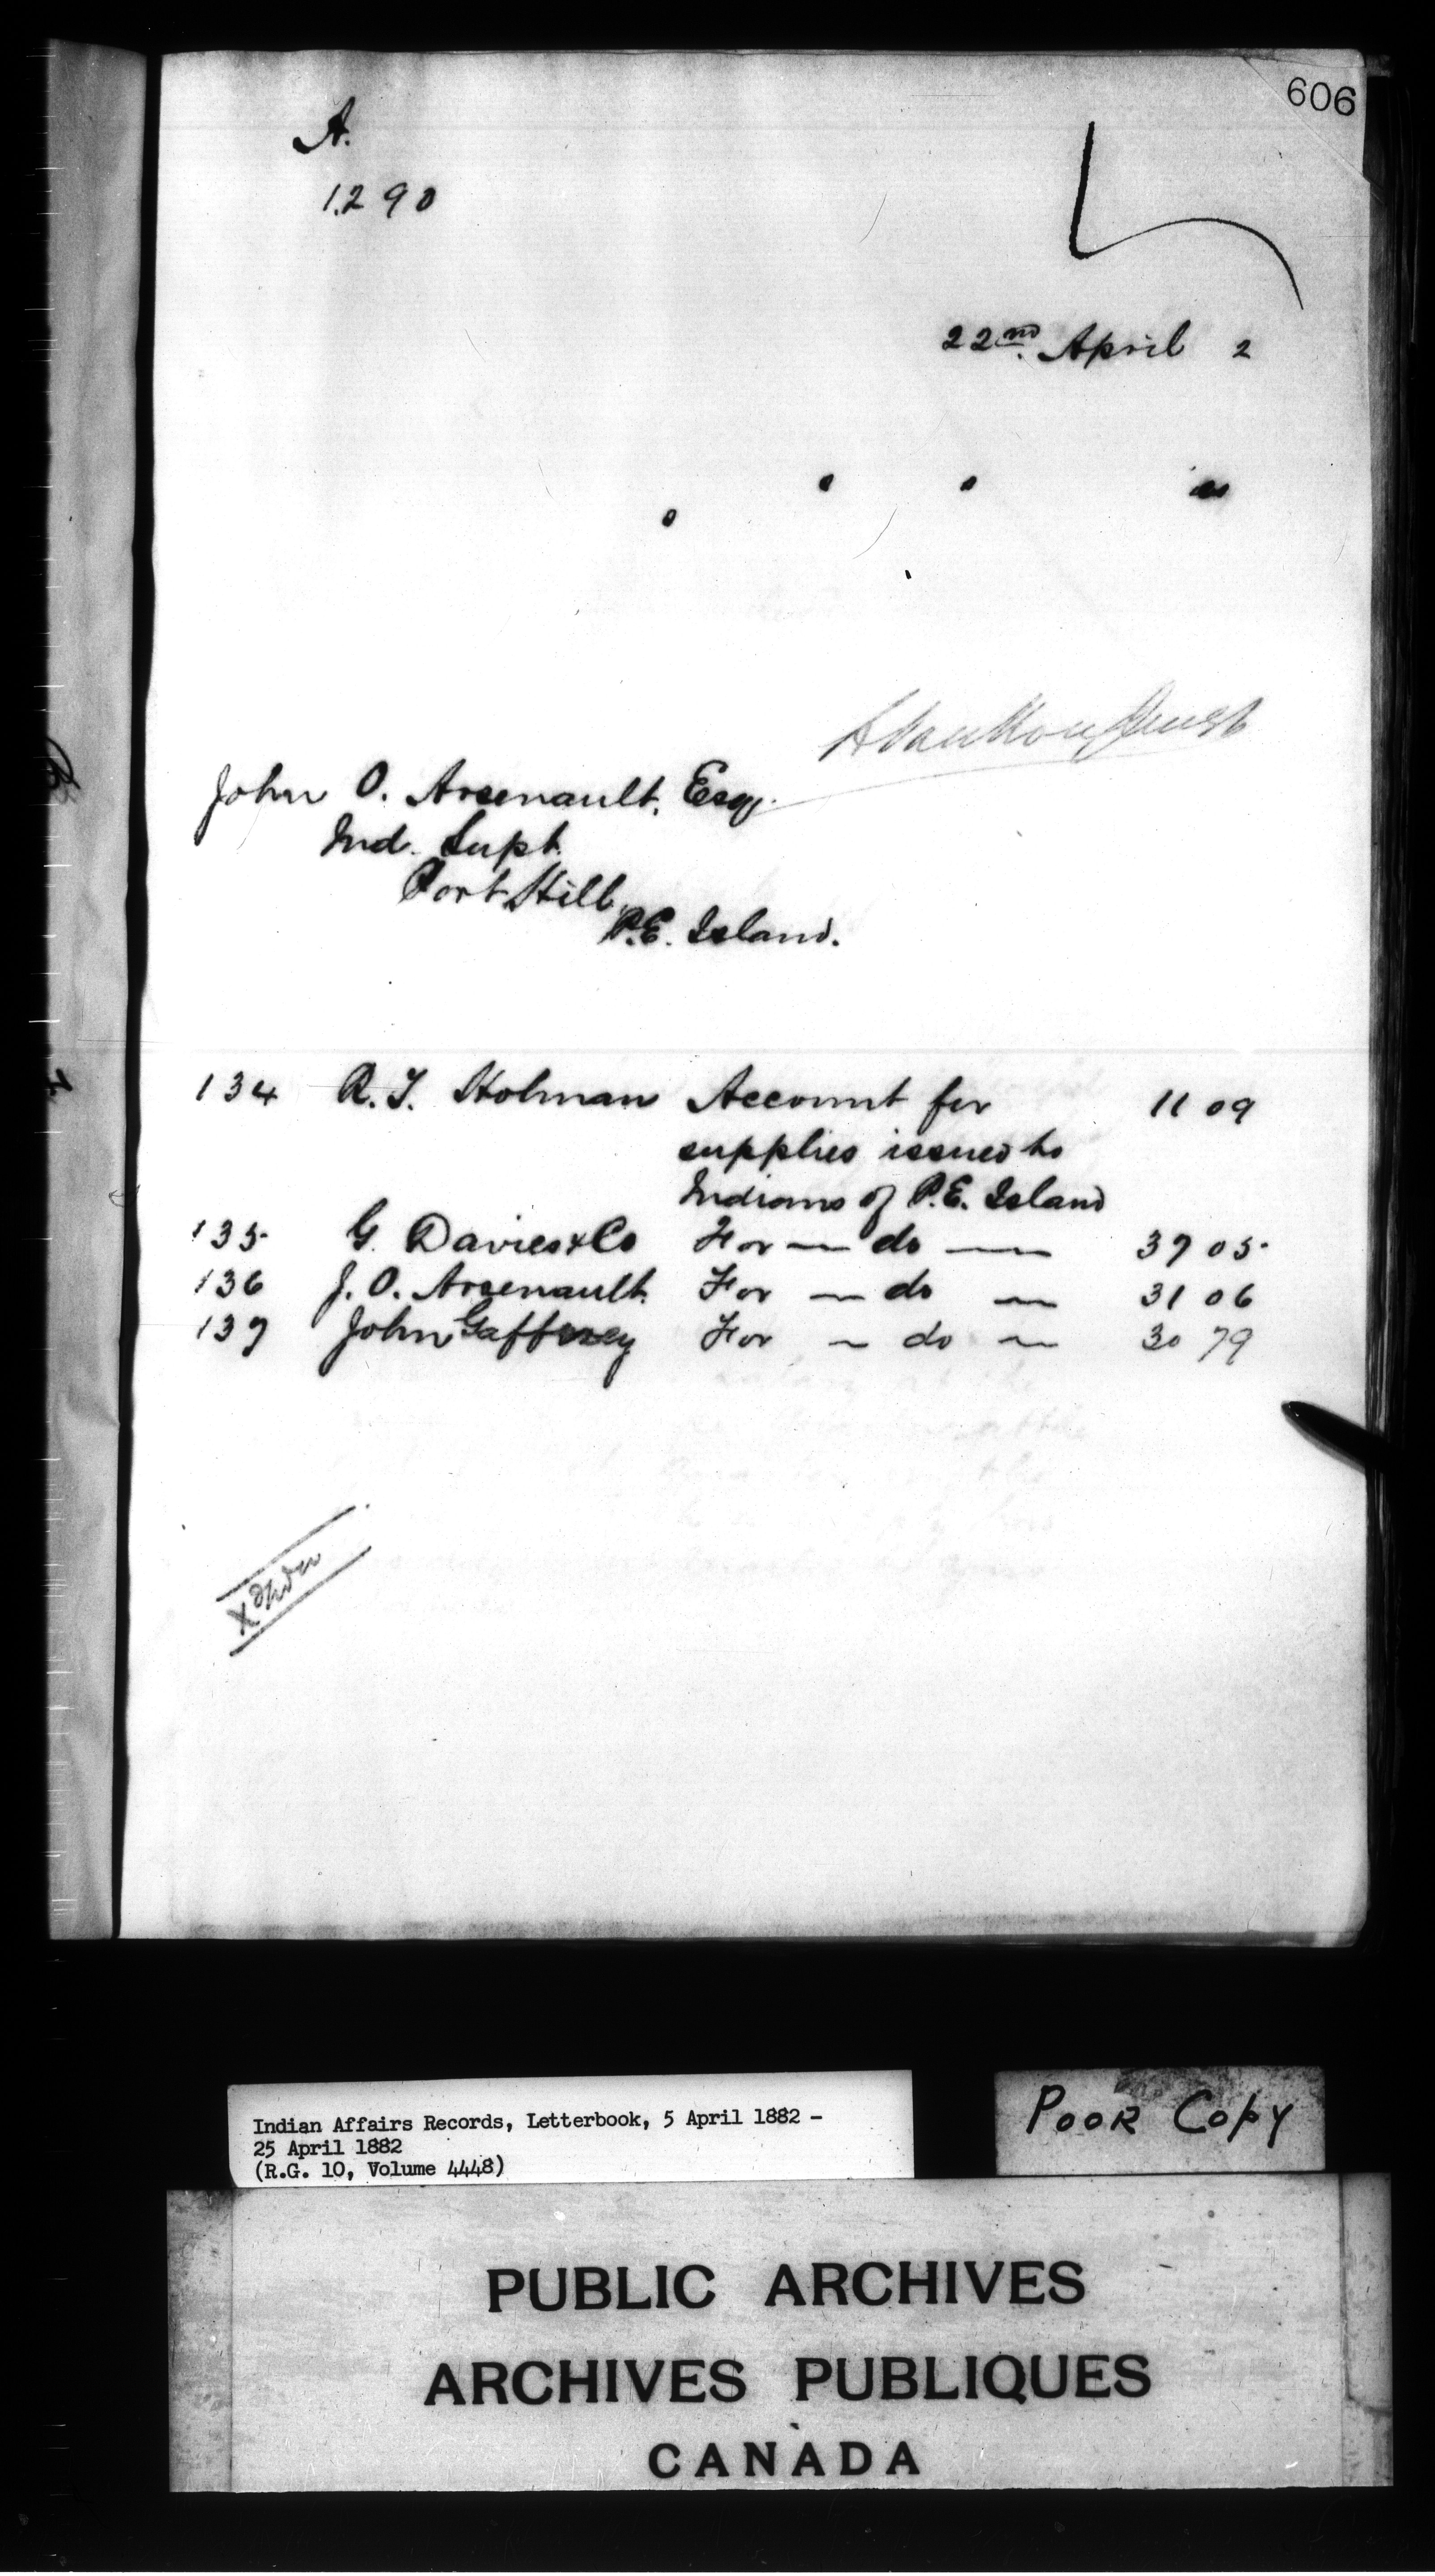 606
A.
1290
22nd April 2
John O. Arsenault, Esq.
Ind. Supt.
Port Hill,
P.E. Island.
134 R. T. Holman Account for 11 09
supplies issued to
Indians of P.E. Island
135 G. Davies & Co For — do — 37 05
136 J. O. Arsenault. For — do — 31 06
137 John Gaffney For — do — 30 79
Indian Affairs Records, Letterbook, 5 April 1882 –
25 April 1882
(R.G. 10, Volume 4448)
POOR COPY
PUBLIC ARCHIVES
ARCHIVES PUBLIQUES
CANADA